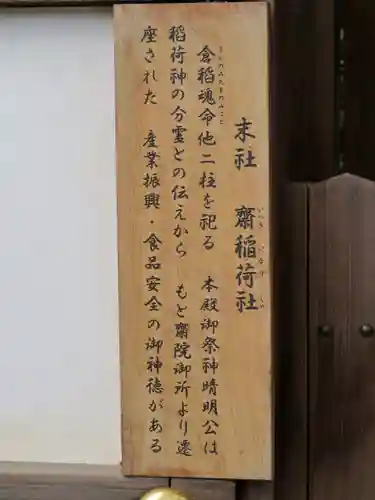 末社 齋稲荷社
倉稲魂命他二柱を祀る 本殿御祭神晴明公は
稲荷神の分霊との伝えから もと齋院御所より遷
座された 産業振興・食品安全の御神徳がある